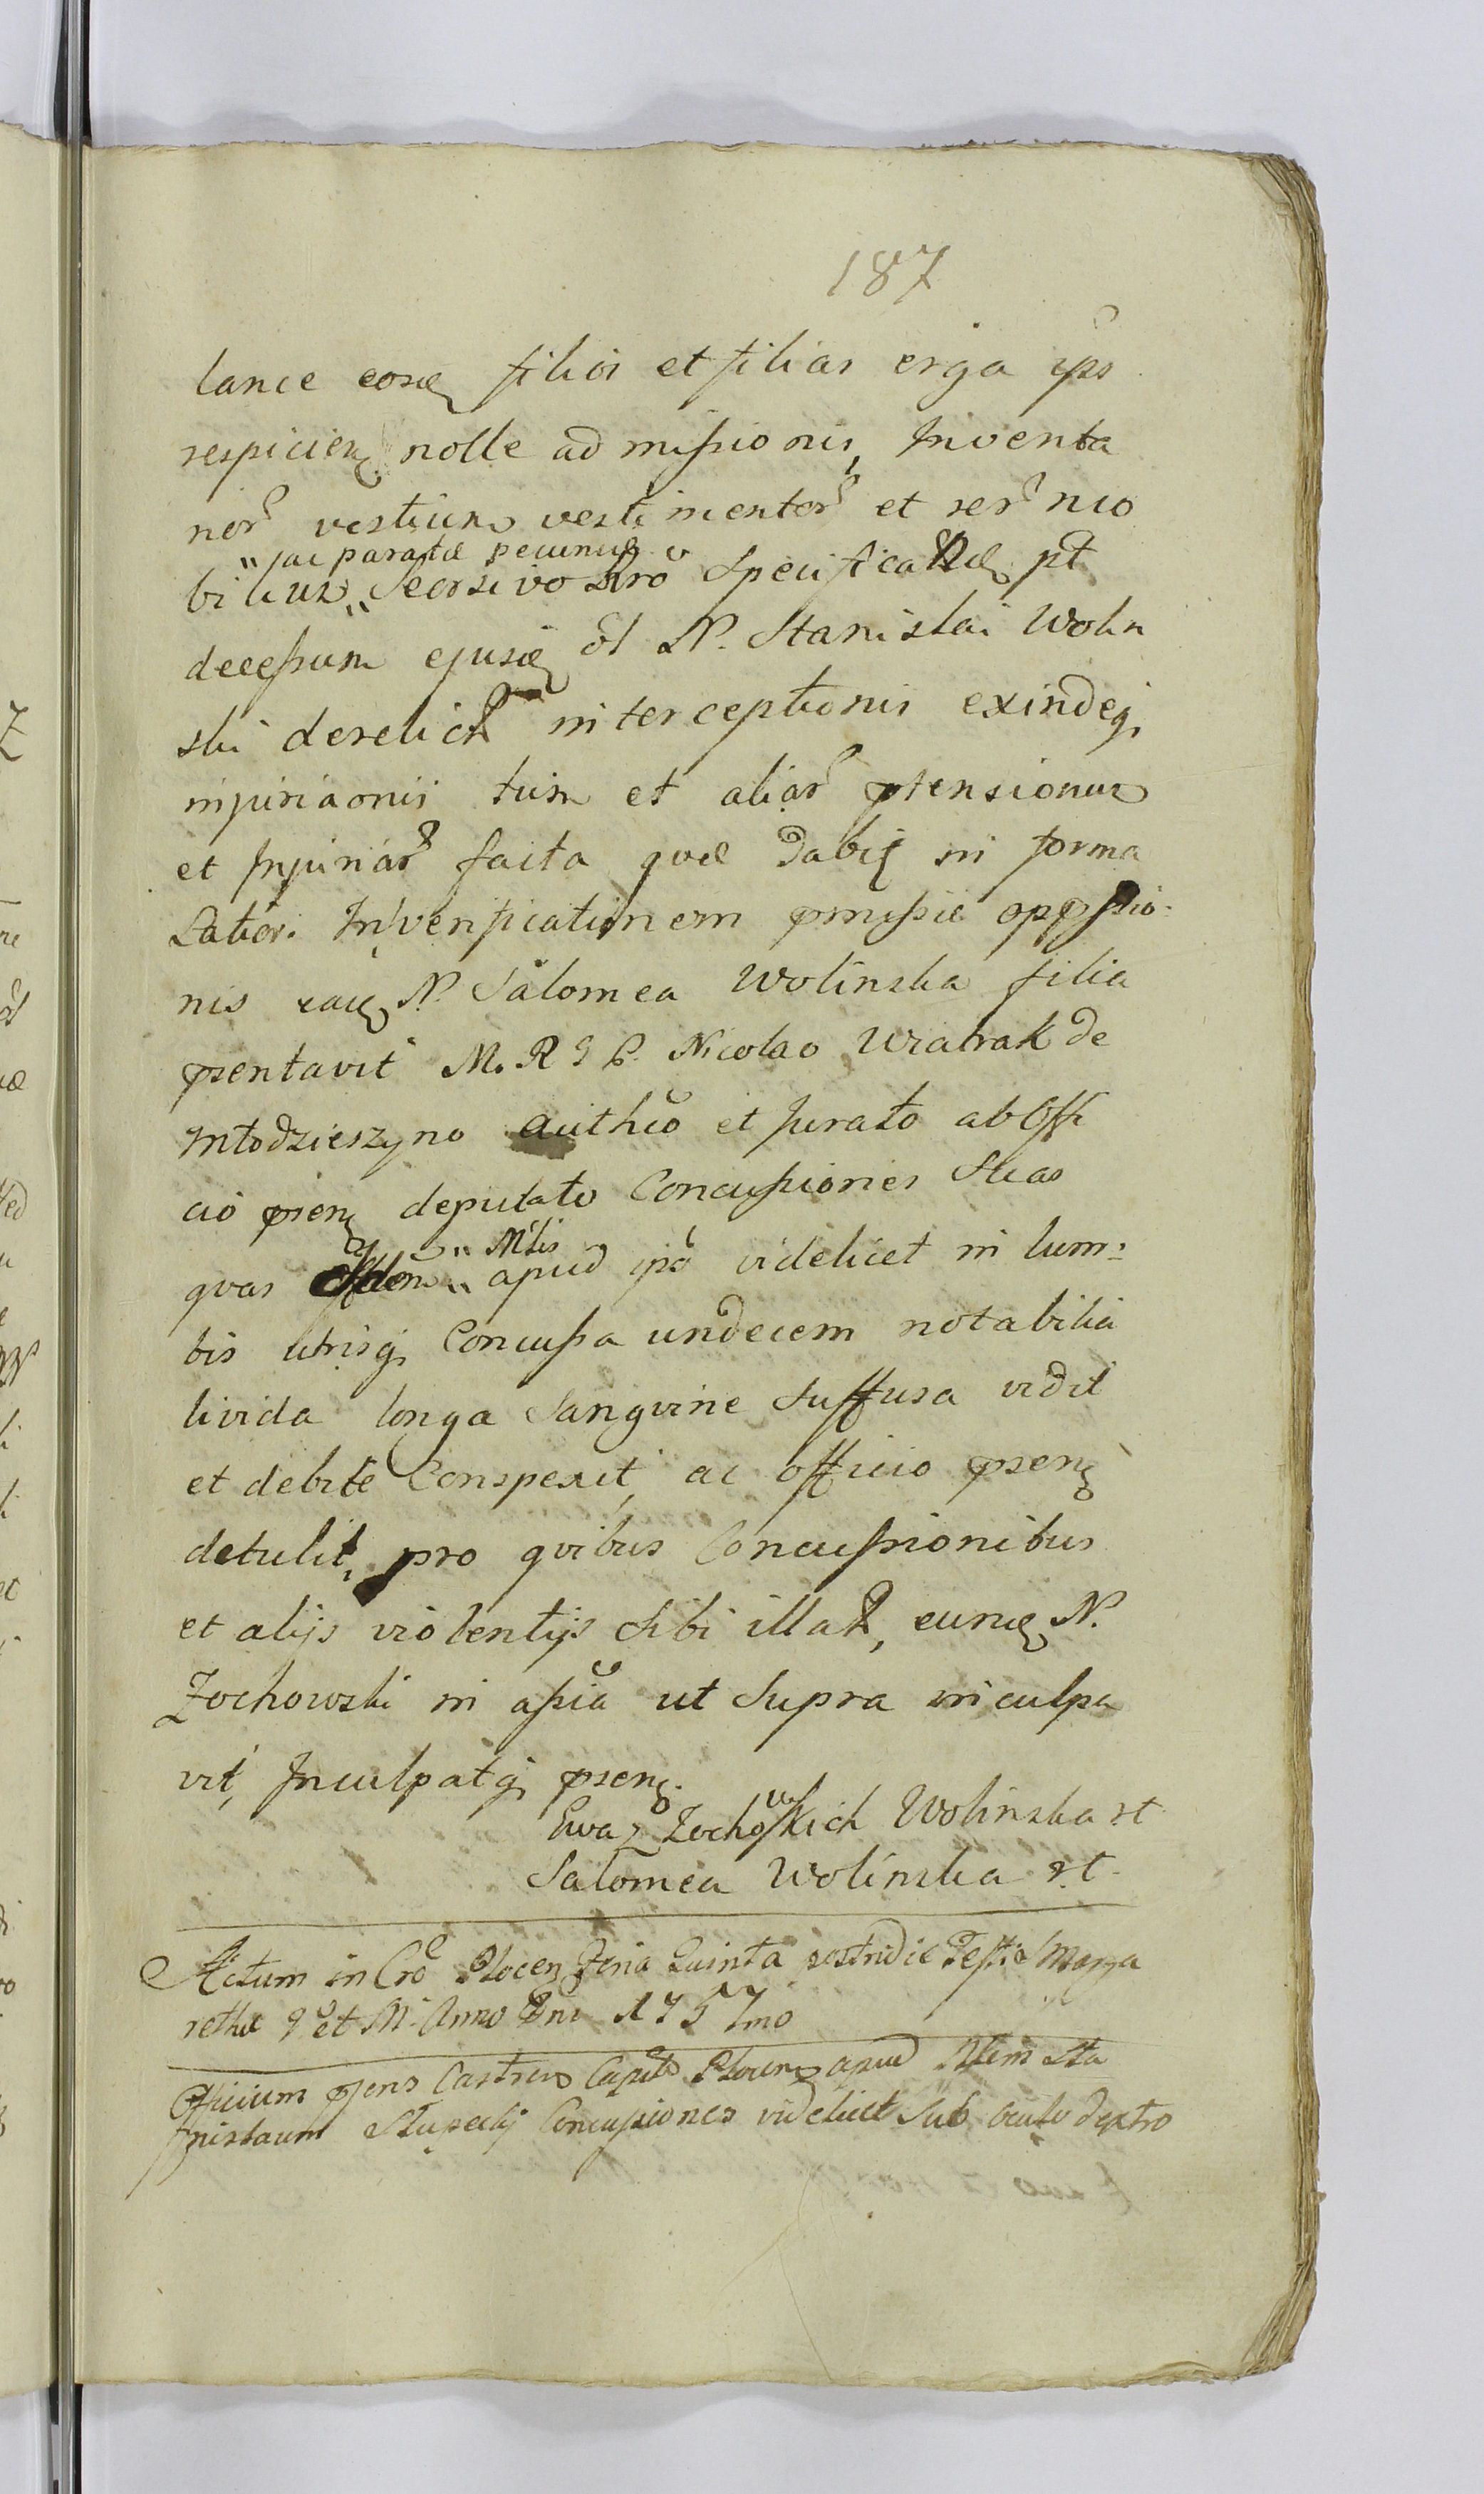 187
lance eosq filios et filias erga ips
respicienq nolle admissionis, Inventa
nor vestium vestimentor et rer mo
" ac paratæ pecuniæ
bilium " Seorsivo Lrō Specificatæ pt
decessum ejusq ol N. Stanislai Wolin
ski derelict interceptionis exindeq
injuriaonis tum et aliar ptensionum
et Injuriar facta quæ Dabiq in forma
Latior. In verificationem pmissæ oppssio:
nis eaq N. Salomea Wolinska filia
psentavit M. R G P. Nicolao Wiatrak de
Młodzieszyno authco et Jurato ab Offi
cio psenq deputato Concussiones Suas
quas Ibidem " Mtis " apud ipo videlicet in lum:
bis utrisq Concussa undecem notabilia
livida longa Sangvine Suffusa vidit
et debite Conspexit, ac officio psenq
detulit, pro quibus Concussionibus
et alijs violentijs Sibi illat, eunq N.
Zochowski in assia ut Supra inculpa
vit, Inculpatq psenq.
Ewa z Zochoskich Wolinska rt
w
Salomea Wolinska rt
Actum in Cro Plocen Feria Quinta postridie Festi Marga
rethæ V et M. Anno Dni 1757mo
Officium psens Castren Capit Plocen apud Nlem Sta
nislaum Slupecky Concussiones videlicet Sub oculo dextro